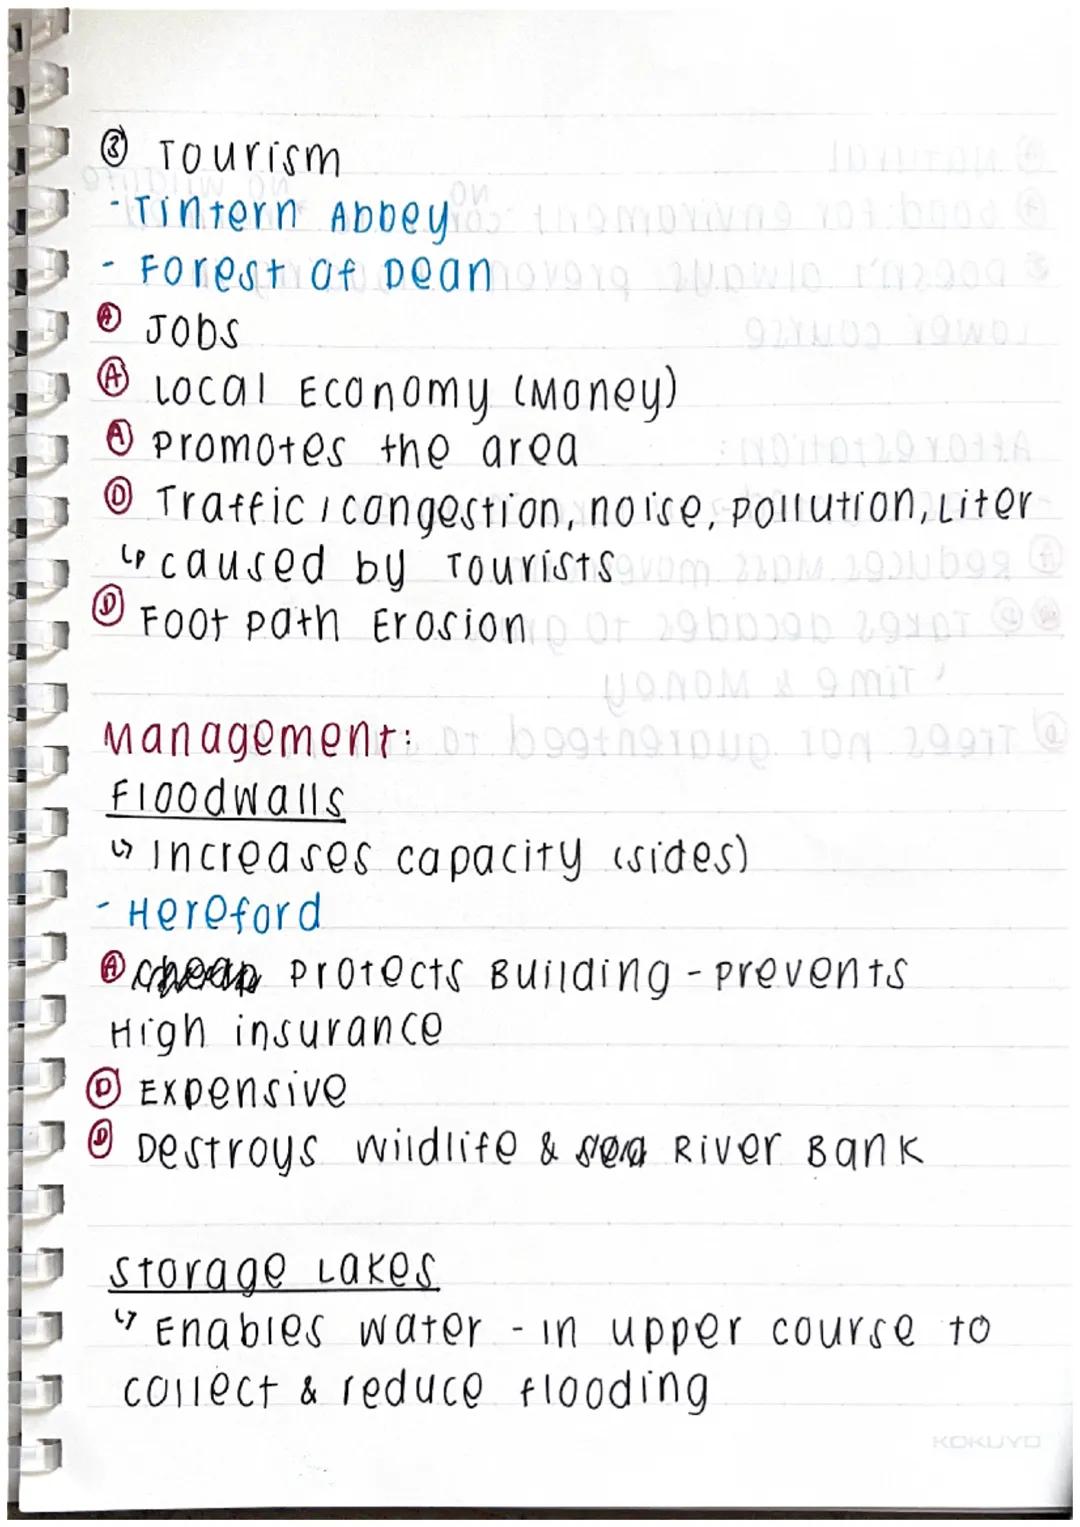 ③ Tourism
- Tintern Abbey
- Forest of Dean
Ⓐ Jobs
Ⓐ Local Economy (Money)
Ⓐ Promotes the area
Ⓓ Traffic / congestion, noise, pollution, Liter
↳ caused by Tourists
Ⓓ Foot path Erosion
Management:
Floodwalls
↳ Increases capacity (sides)
- Hereford
Ⓐ cheap Protects Building - prevents
High insurance
Ⓓ Expensive
Ⓓ Destroys wildlife & sea River Bank
Storage Lakes
↳ Enables water - in upper course to
collect & reduce flooding
KOKUYO